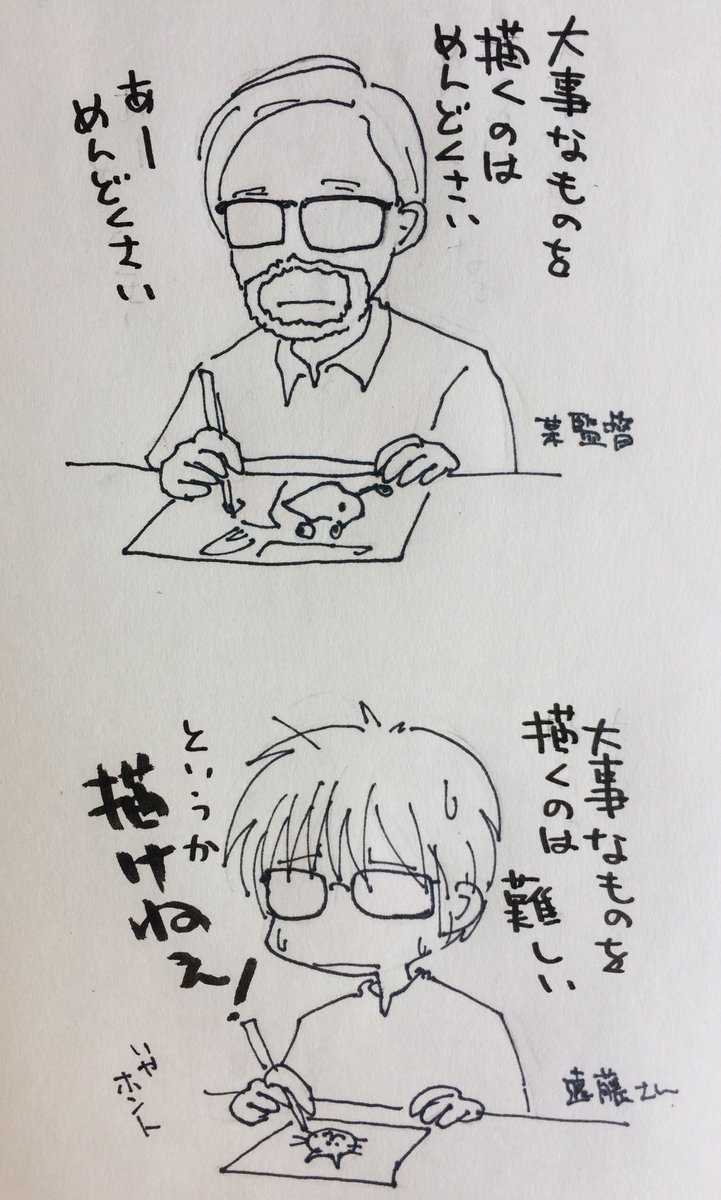 大事なものを
描くのは
めんどくさい
あー
めんどくさい
某監督
大事なものを
描くのは
難しい
というか
描けねぇ!
いや
ホント
遠藤さん